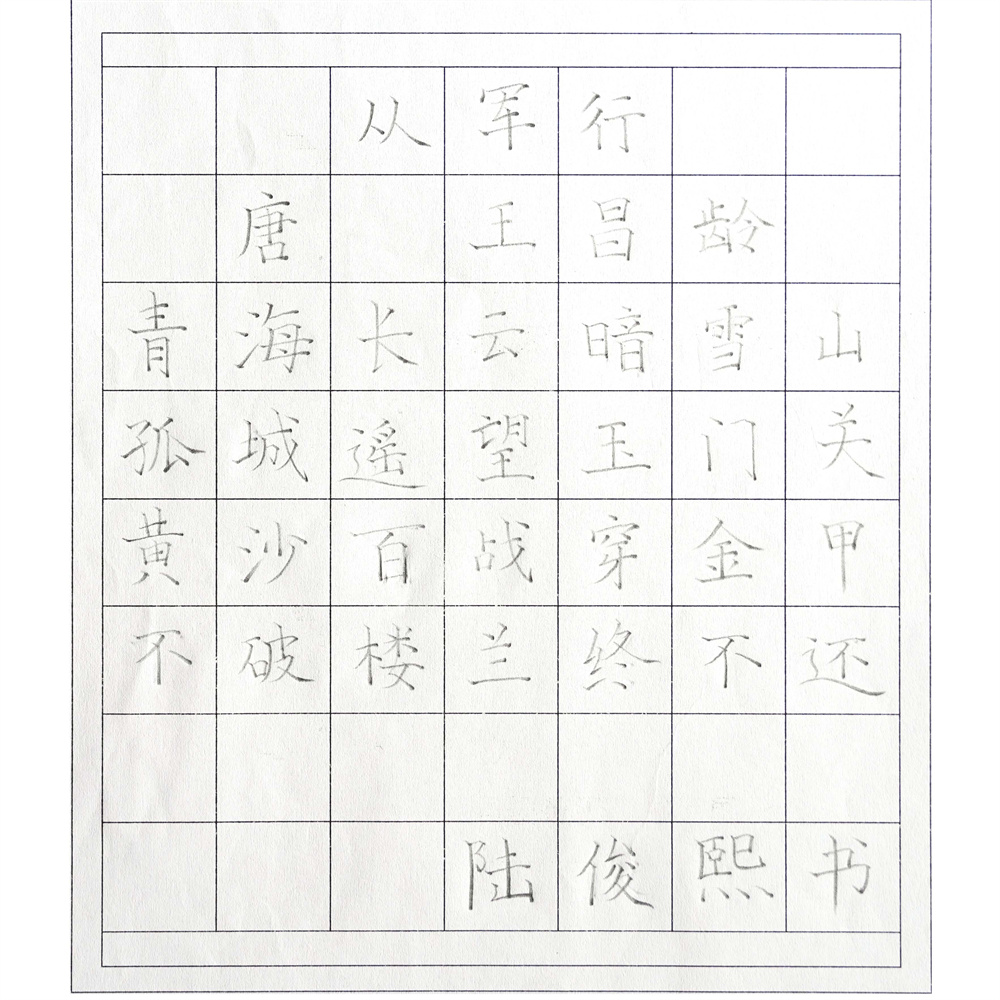 从军行
唐 王昌龄
青海长云暗雪山
孤城遥望玉门关
黄沙百战穿金甲
不破楼兰终不还
陆俊熙书